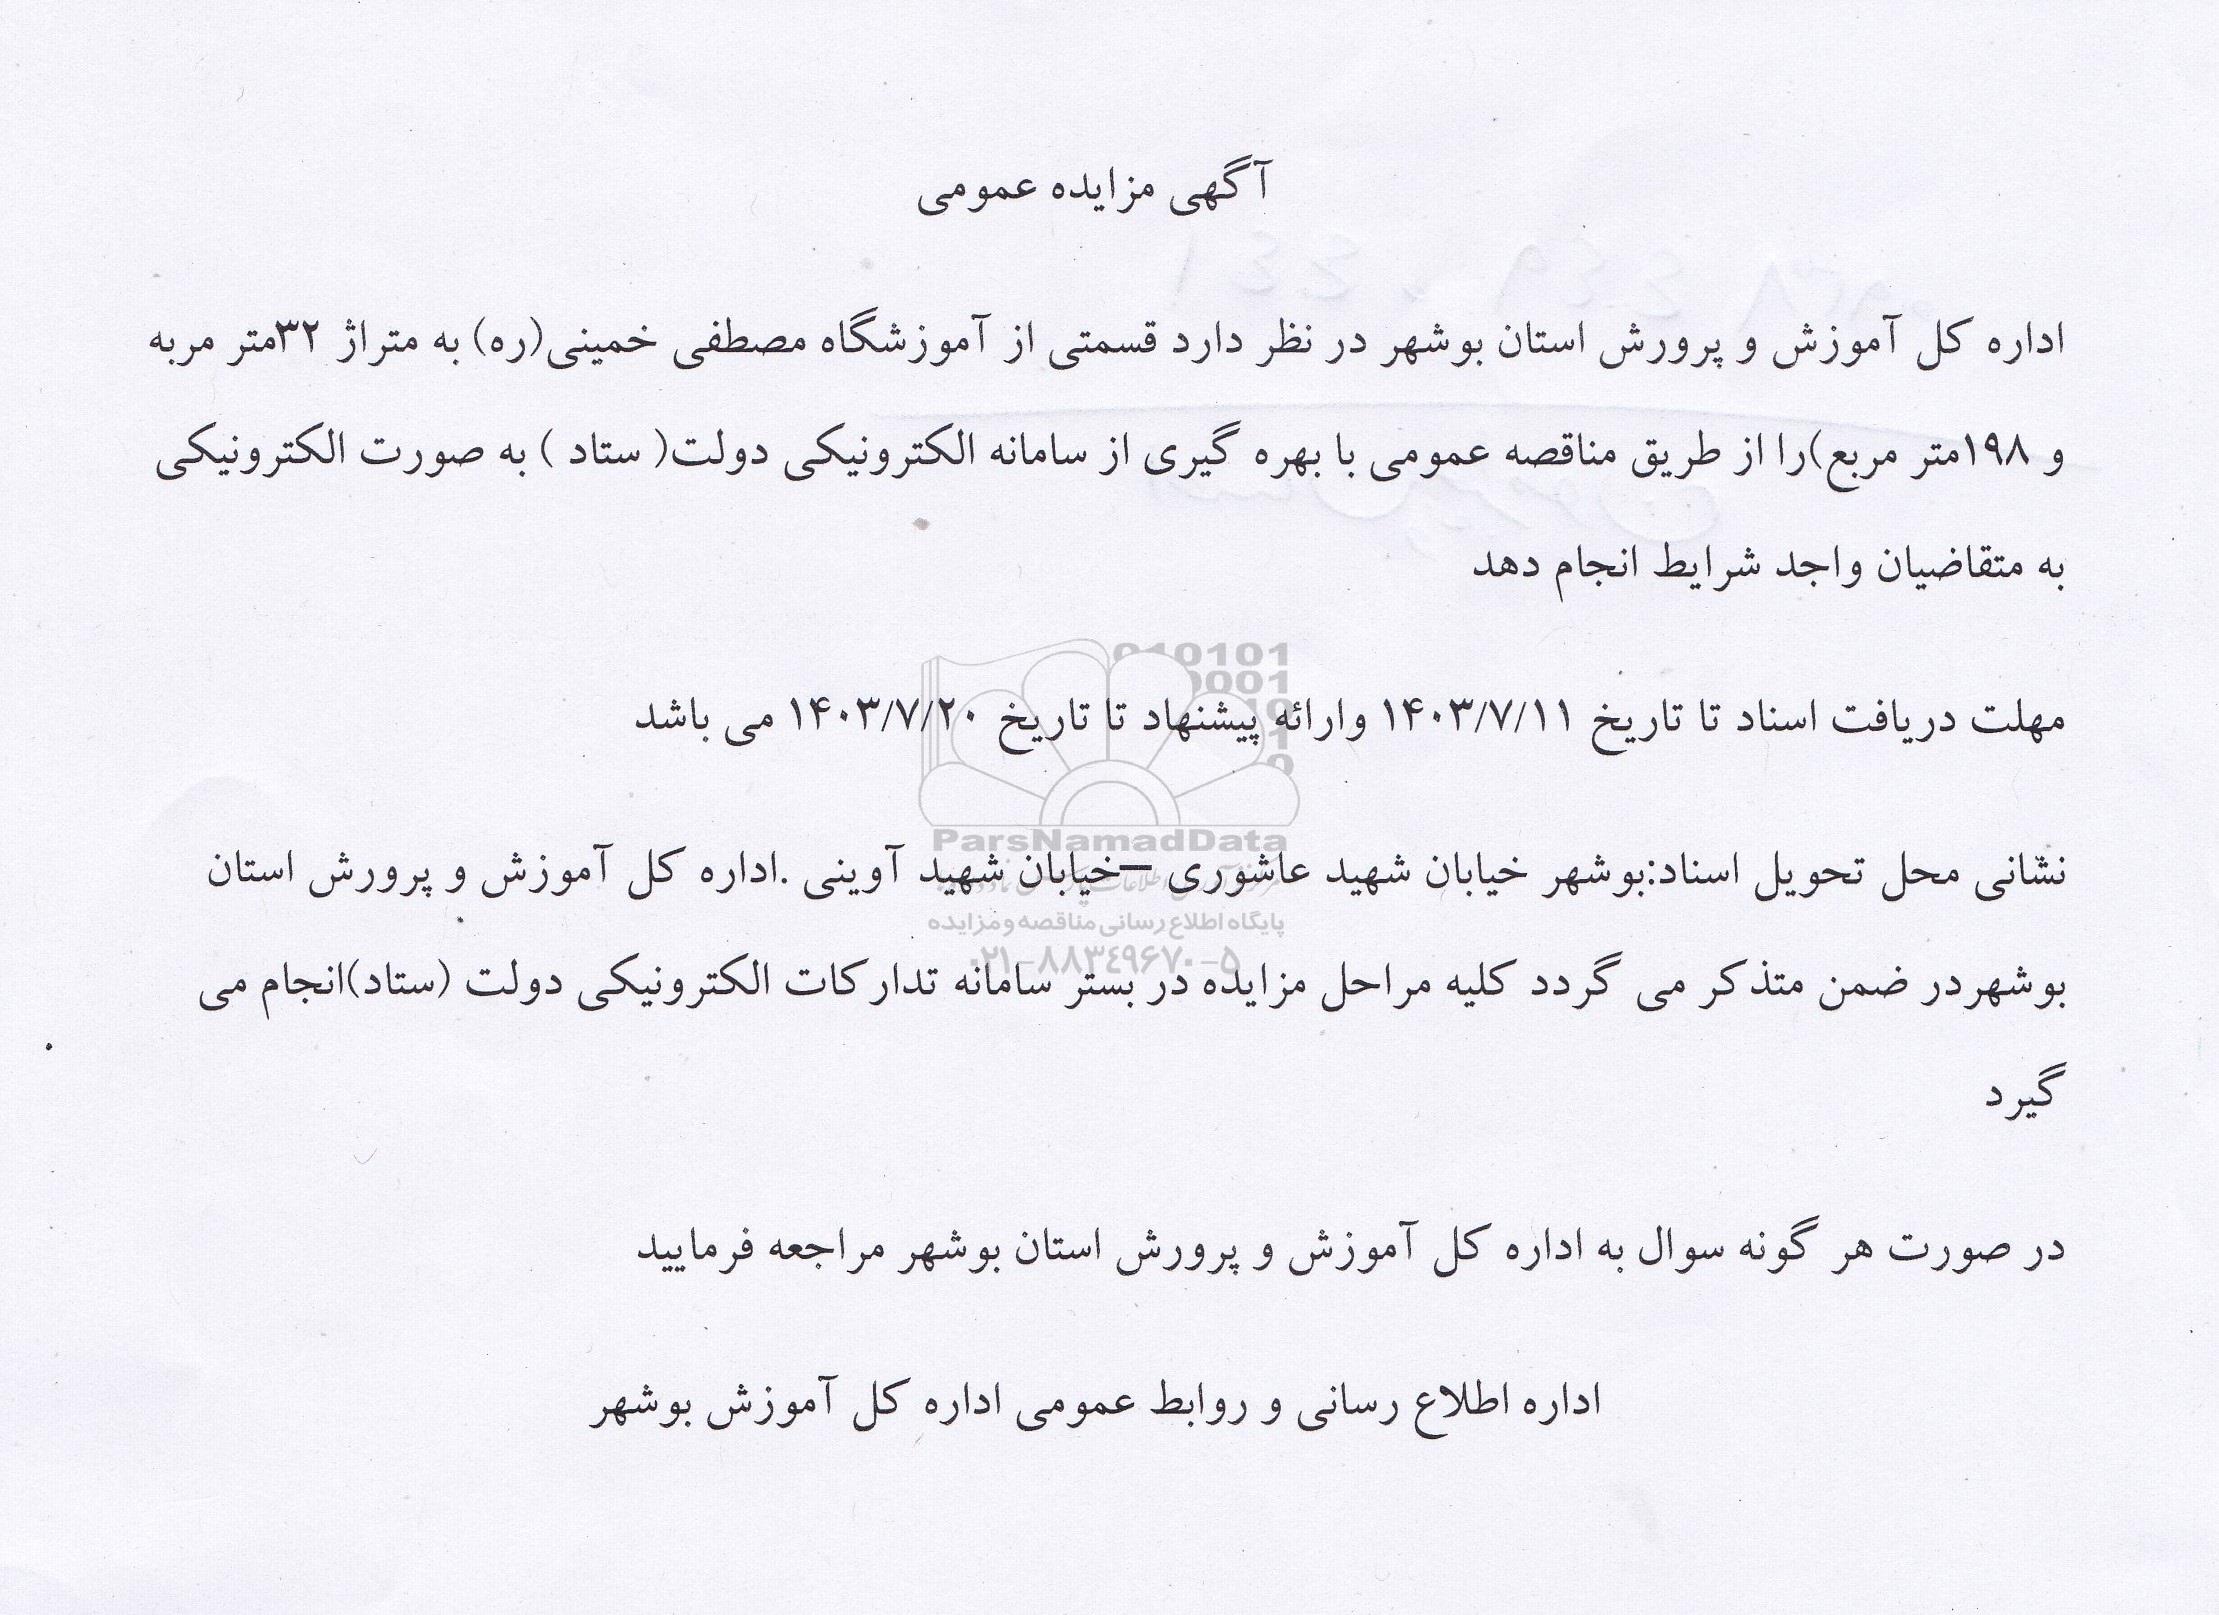 آگهی مزایده عمومی
اداره کل آموزش و پرورش استان بوشهر در نظر دارد قسمتی از آموزشگاه مصطفی خمینی(ره) به متراژ ۳۲متر مربه
و ۱۹۸متر مربع)را از طریق مناقصه عمومی با بهره گیری از سامانه الکترونیکی دولت( ستاد ) به صورت الکترونیکی
به متقاضیان واجد شرایط انجام دهد
010101
0001
مهلت دریافت اسناد تا تاریخ ۱۴۰۳/۷/۱۱ وارائه پیشنهاد تا تاریخ ۱۴۰۳/۷/۲۰ می باشد
ParsNamadData
نشانی محل تحویل اسناد:بوشهر خیابان شهید عاشوری –خیابان شهید آوینی .اداره کل آموزش و پرورش استان
پایگاه اطلاع رسانی مناقصه و مزایده
۰۲۱-۸۸۳۴۹۶۷۰-۵
بوشهردر ضمن متذکر می گردد کلیه مراحل مزایده در بستر سامانه تدارکات الکترونیکی دولت (ستاد)انجام می
گیرد
در صورت هر گونه سوال به اداره کل آموزش و پرورش استان بوشهر مراجعه فرمایید
اداره اطلاع رسانی و روابط عمومی اداره کل آموزش بوشهر